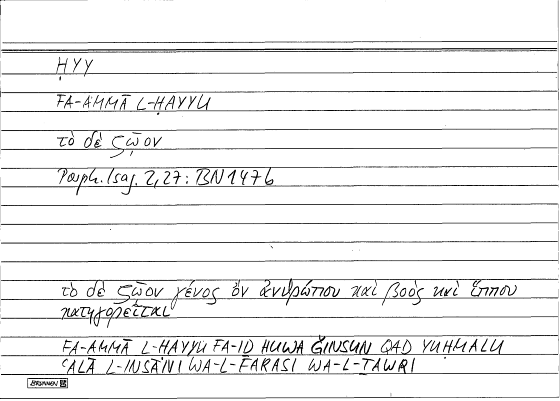 ḤYY
FA-AMMĀ L-ḤAYYU
τὸ δὲ ζῷον
Porph. Isag. 2,27: BN 147b
τὸ δὲ ζῷον γένος ὂν ἀνθρώπου καὶ βοὸς καὶ ἵππου
κατηγορεῖται
FA-AMMĀ L-ḤAYYU FA-IḎ HUWA ǦINSUN QAD YUḤMALU
ʿALĀ L-INSĀNI WA-L-FARASI WA-L-ṮAWRI
BRUNNEN